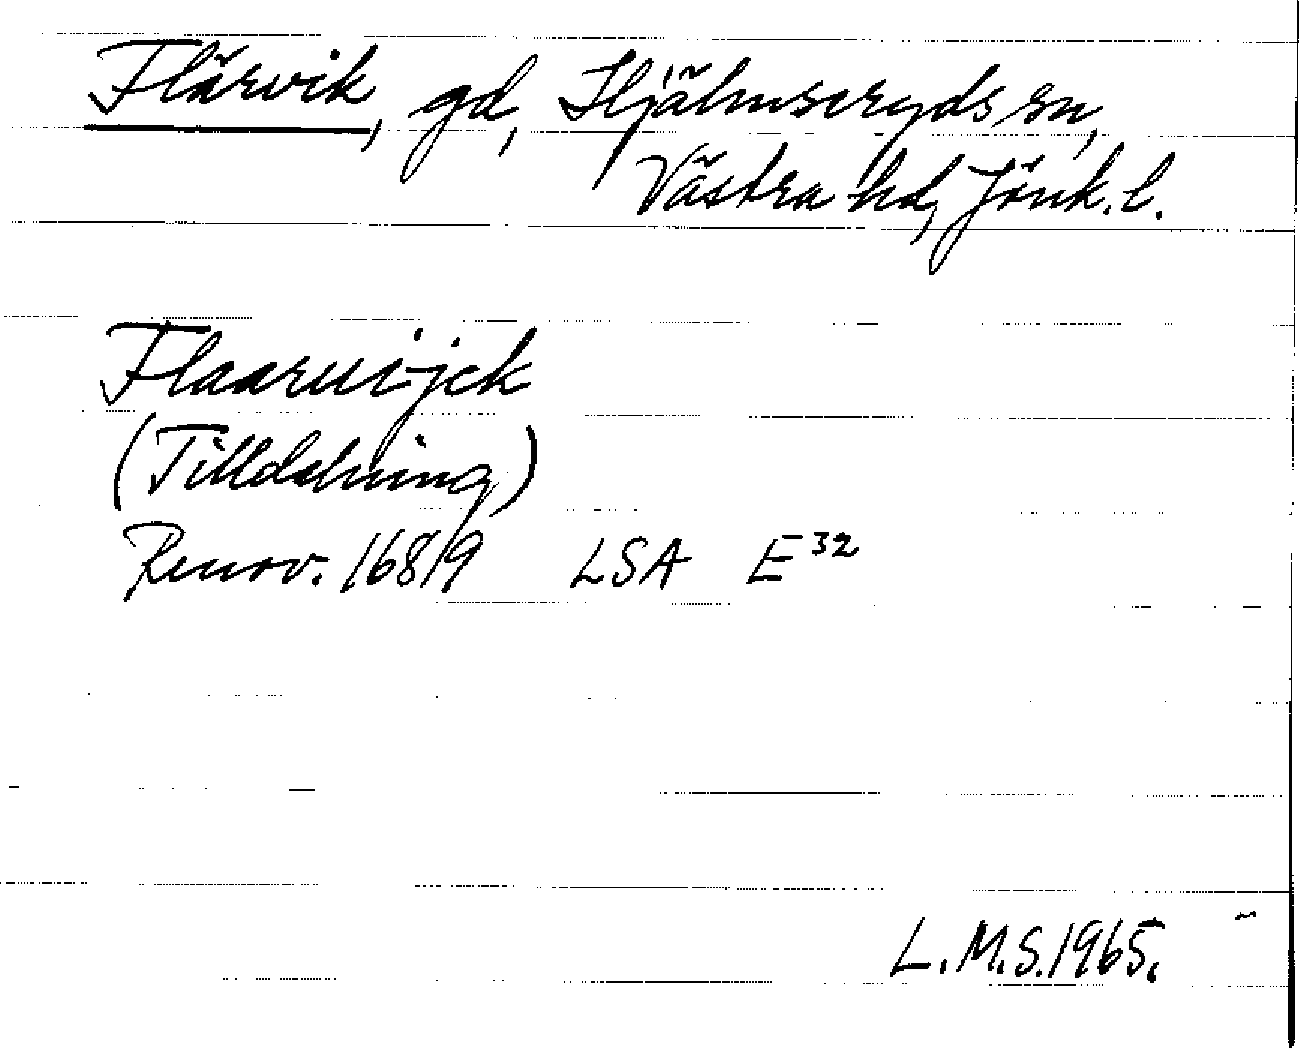 Flärvik, gd, Hjälmseryds sn,
Västra hd, Jönk. l.
Flaaruijck
(Tilldelning)
Renov. 1681/9 LSA E 32
L.M.S. 1965.